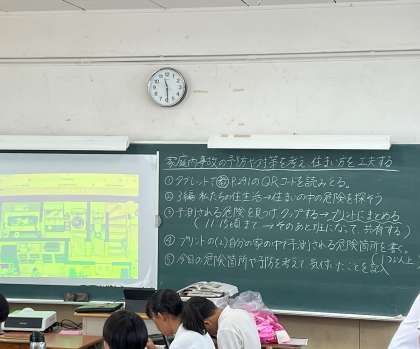 家庭内事故の予防や対策を考え、住まい方を工夫する
①タブレットで P.291のQRコードを読みとる。
②3編 私たちの住生活→住まいの中の危険を探そう
③予測される危険を見つけタップする→プリントにまとめる
(11:15頃まで→そのあと班になって、共有する)
④プリントの(2)自分の家の中で予測される危険箇所を書く
(1つ以上)
⑤今日の危険箇所や予防を考えて気付いたことを記入